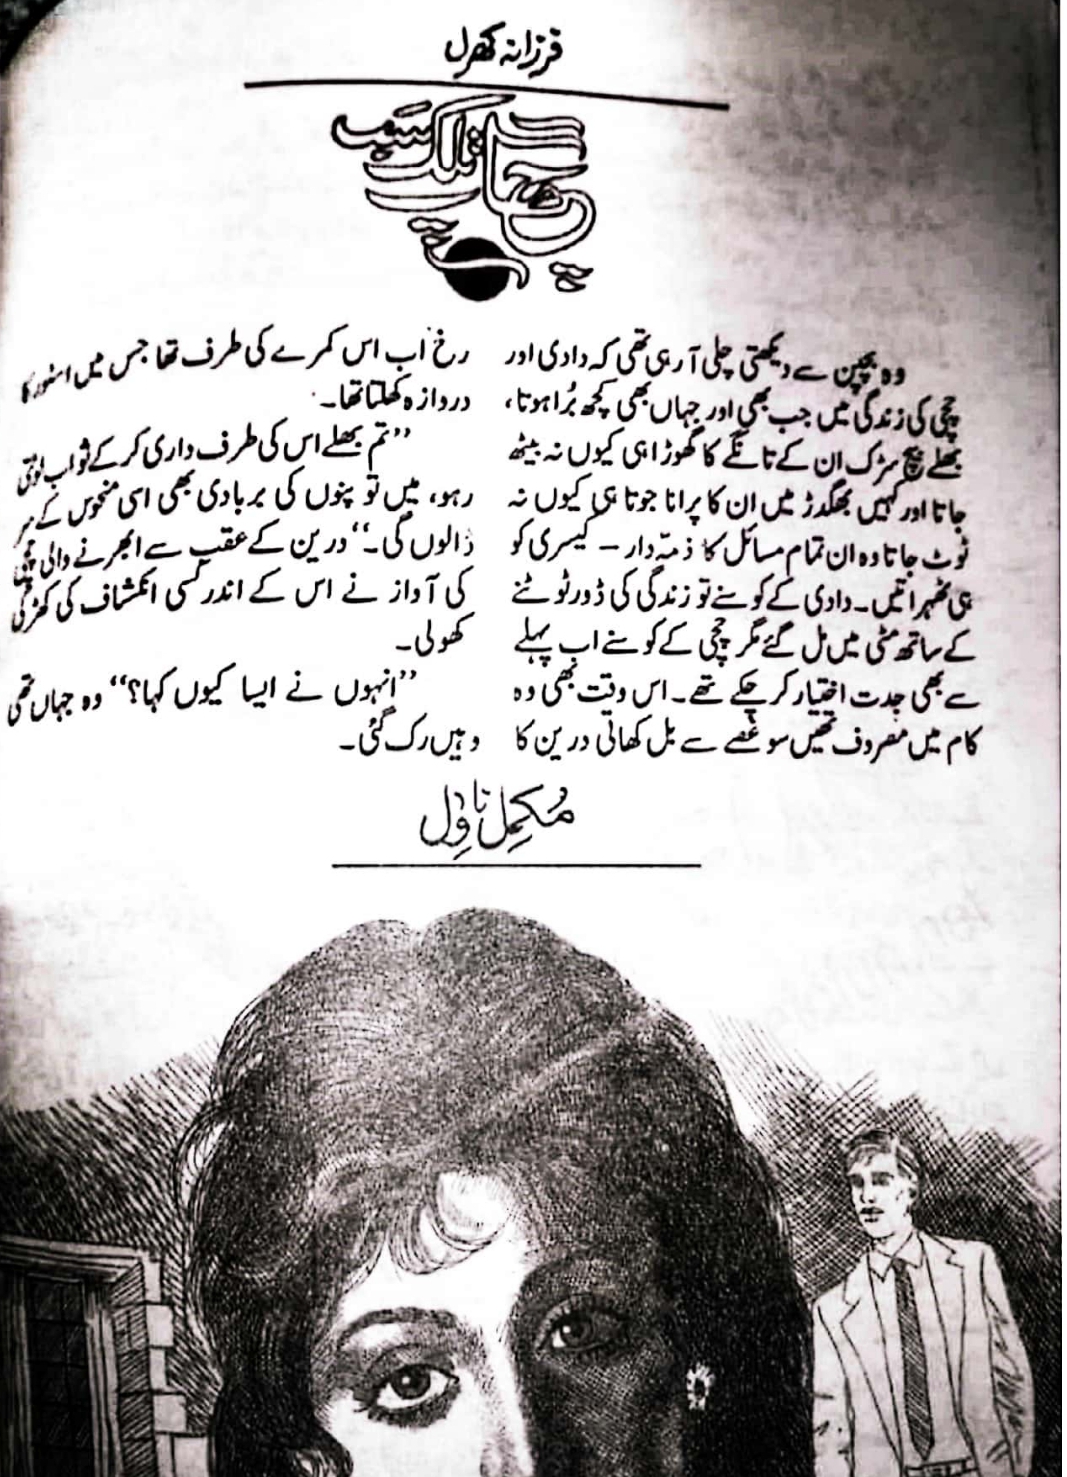 فرزانہ کھرل
وہ بچپن سے دیکھتی چلی آ رہی تھی کہ دادی اور
چچی کی زندگی میں جب بھی اور جہاں بھی کچھ بُرا ہوتا،
بھلے بیچ سڑک ان کے تانگے کا گھوڑا ہی کیوں نہ بیٹھ
جاتا اور کہیں بھگدڑ میں ان کا پرانا جوتا ہی کیوں نہ
ٹوٹ جاتا وہ ان تمام مسائل کا ذمہّ دار – کیسری کو
ہی ٹھہراتیں۔ دادی کے کوسنے تو زندگی کی ڈور ٹوٹنے
کے ساتھ مٹی میں مل گئے مگر چچی کے کوسنے اب پہلے
سے بھی جدت اختیار کر چکے تھے۔ اس وقت بھی وہ
کام میں مصروف تھیں سو غصّے سے بل کھاتی درین کا
رخ اب اس کمرے کی طرف تھا جس میں اسٹور کا
دروازہ کھلتا تھا۔
’’تم بھلے اس کی طرف داری کر کے ثواب لوٹتی
رہو، میں تو پنوں کی بربادی بھی اسی منحوس کے سر
ڈالوں گی۔‘‘ درین کے عقب سے ابھرنے والی چچی
کی آواز نے اس کے اندر کسی انکشاف کی کھڑکی
کھولی۔
’’انہوں نے ایسا کیوں کہا؟‘‘ وہ جہاں تھی
وہیں رک گئی۔
مُکمل ناوِل